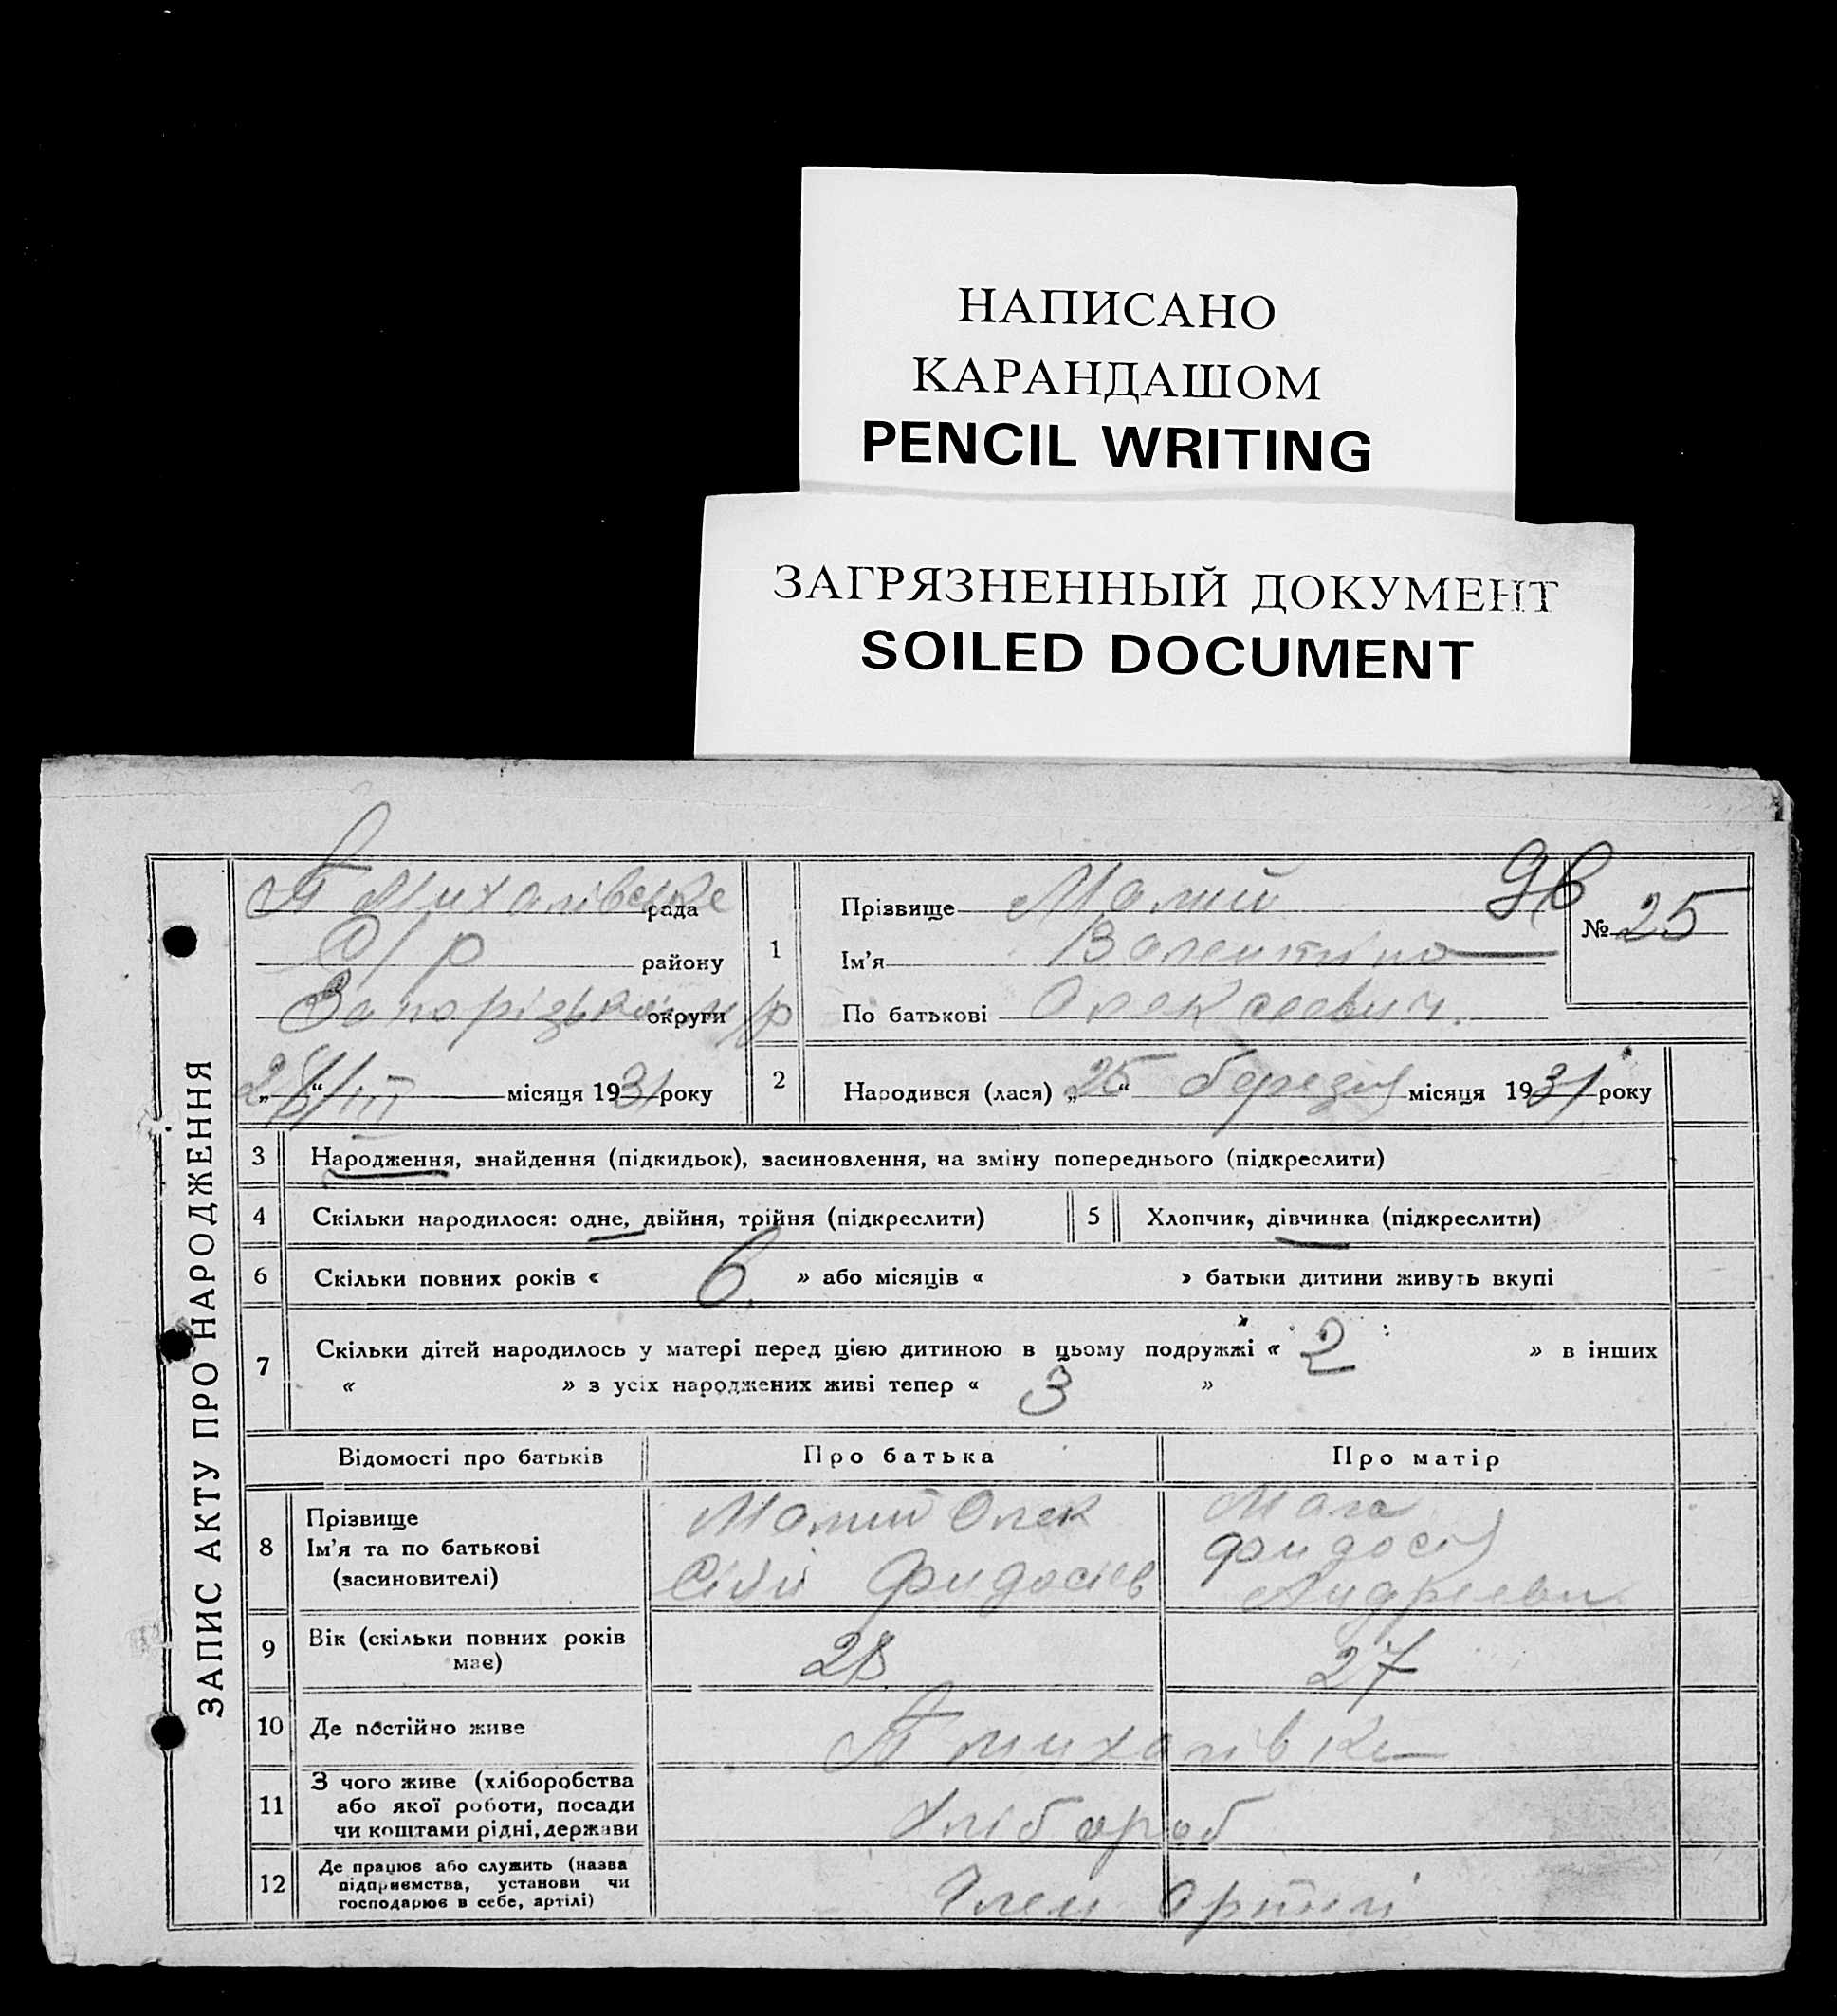 НАПИСАНО
КАРАНДАШОМ
PENCIL WRITING
ЗАГРЯЗНЕННЫЙ ДОКУМЕНТ
SOILED DOCUMENT
ЗАПИС АКТУ ПРО НАРОДЖЕННЯ
рада
району
округи
28/III місяця 1931 року
1
Прізвище Малий
Ім'я Валентина
По батькові Олексеевич.
№ 25
2
Народився (лася) „25“ березня місяця 1931 року
3 Народження, знайдення (підкидьок), засиновлення, на зміну попереднього (підкреслити)
4 Скільки народилося: одне, двійня, трійня (підкреслити)
5 Хлопчик, дівчинка (підкреслити)
6 Скільки повних років « 6 » або місяців « » батьки дитини живуть вкупі
7 Скільки дітей народилось у матері перед цією дитиною в цьому подружжі « 2 » в інших
« » з усіх народжених живі тепер « 3 »
Відомості про батьків
Про батька
Про матір
8
Прізвище
Ім'я та по батькові
(засиновителі)
Малий Олек
Сій Фидосіев
Мала
Фидося
9 Вік (скільки повних років
має)
28
27
10 Де постійно живе
П михалівка
11
З чого живе (хліборобства
або якої роботи, посади
чи коштами рідні, держави
хлібороб
12
Де працює або служить (назва
підприємства, установи чи
господарює в себе, артілі)
Член артілі